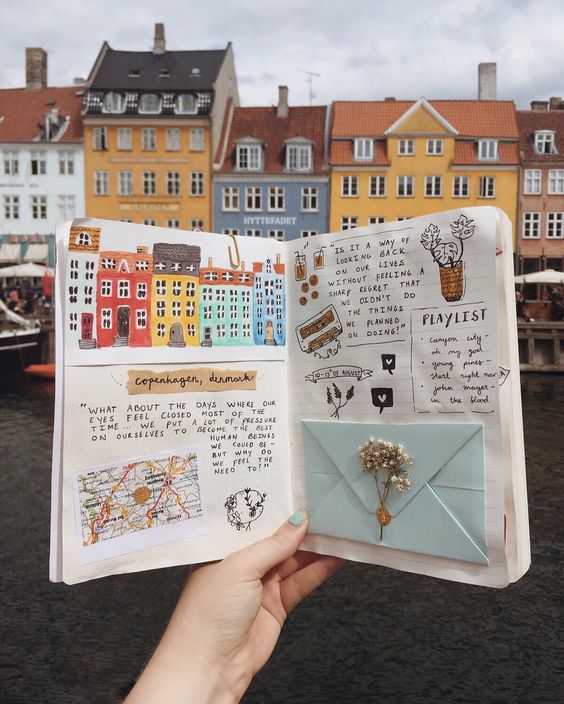 HYTTEFADET
copenhagen, denmark
"WHAT ABOUT THE DAYS WHERE OUR
EYES FEEL CLOSED MOST OF THE
TIME... WE PUT A LOT OF PRESSURE
ON OURSELVES TO BECOME THE BEST
HUMAN BEINGS
WE COULD BE-
BUT WHY DO
WE FEEL THE
NEED TO?"
"IS IT A WAY OF
LOOKING BACK
ON OUR LIVES
WITHOUT FEELING A
SHARP REGRET THAT
WE DIDN'T DO
THE THINGS
WE PLANNED
ON DOING?"
PLAYLIST
canyon city
oh my god
young ones
start right now
john mayer
in the blood
10-13th OF AUGUST